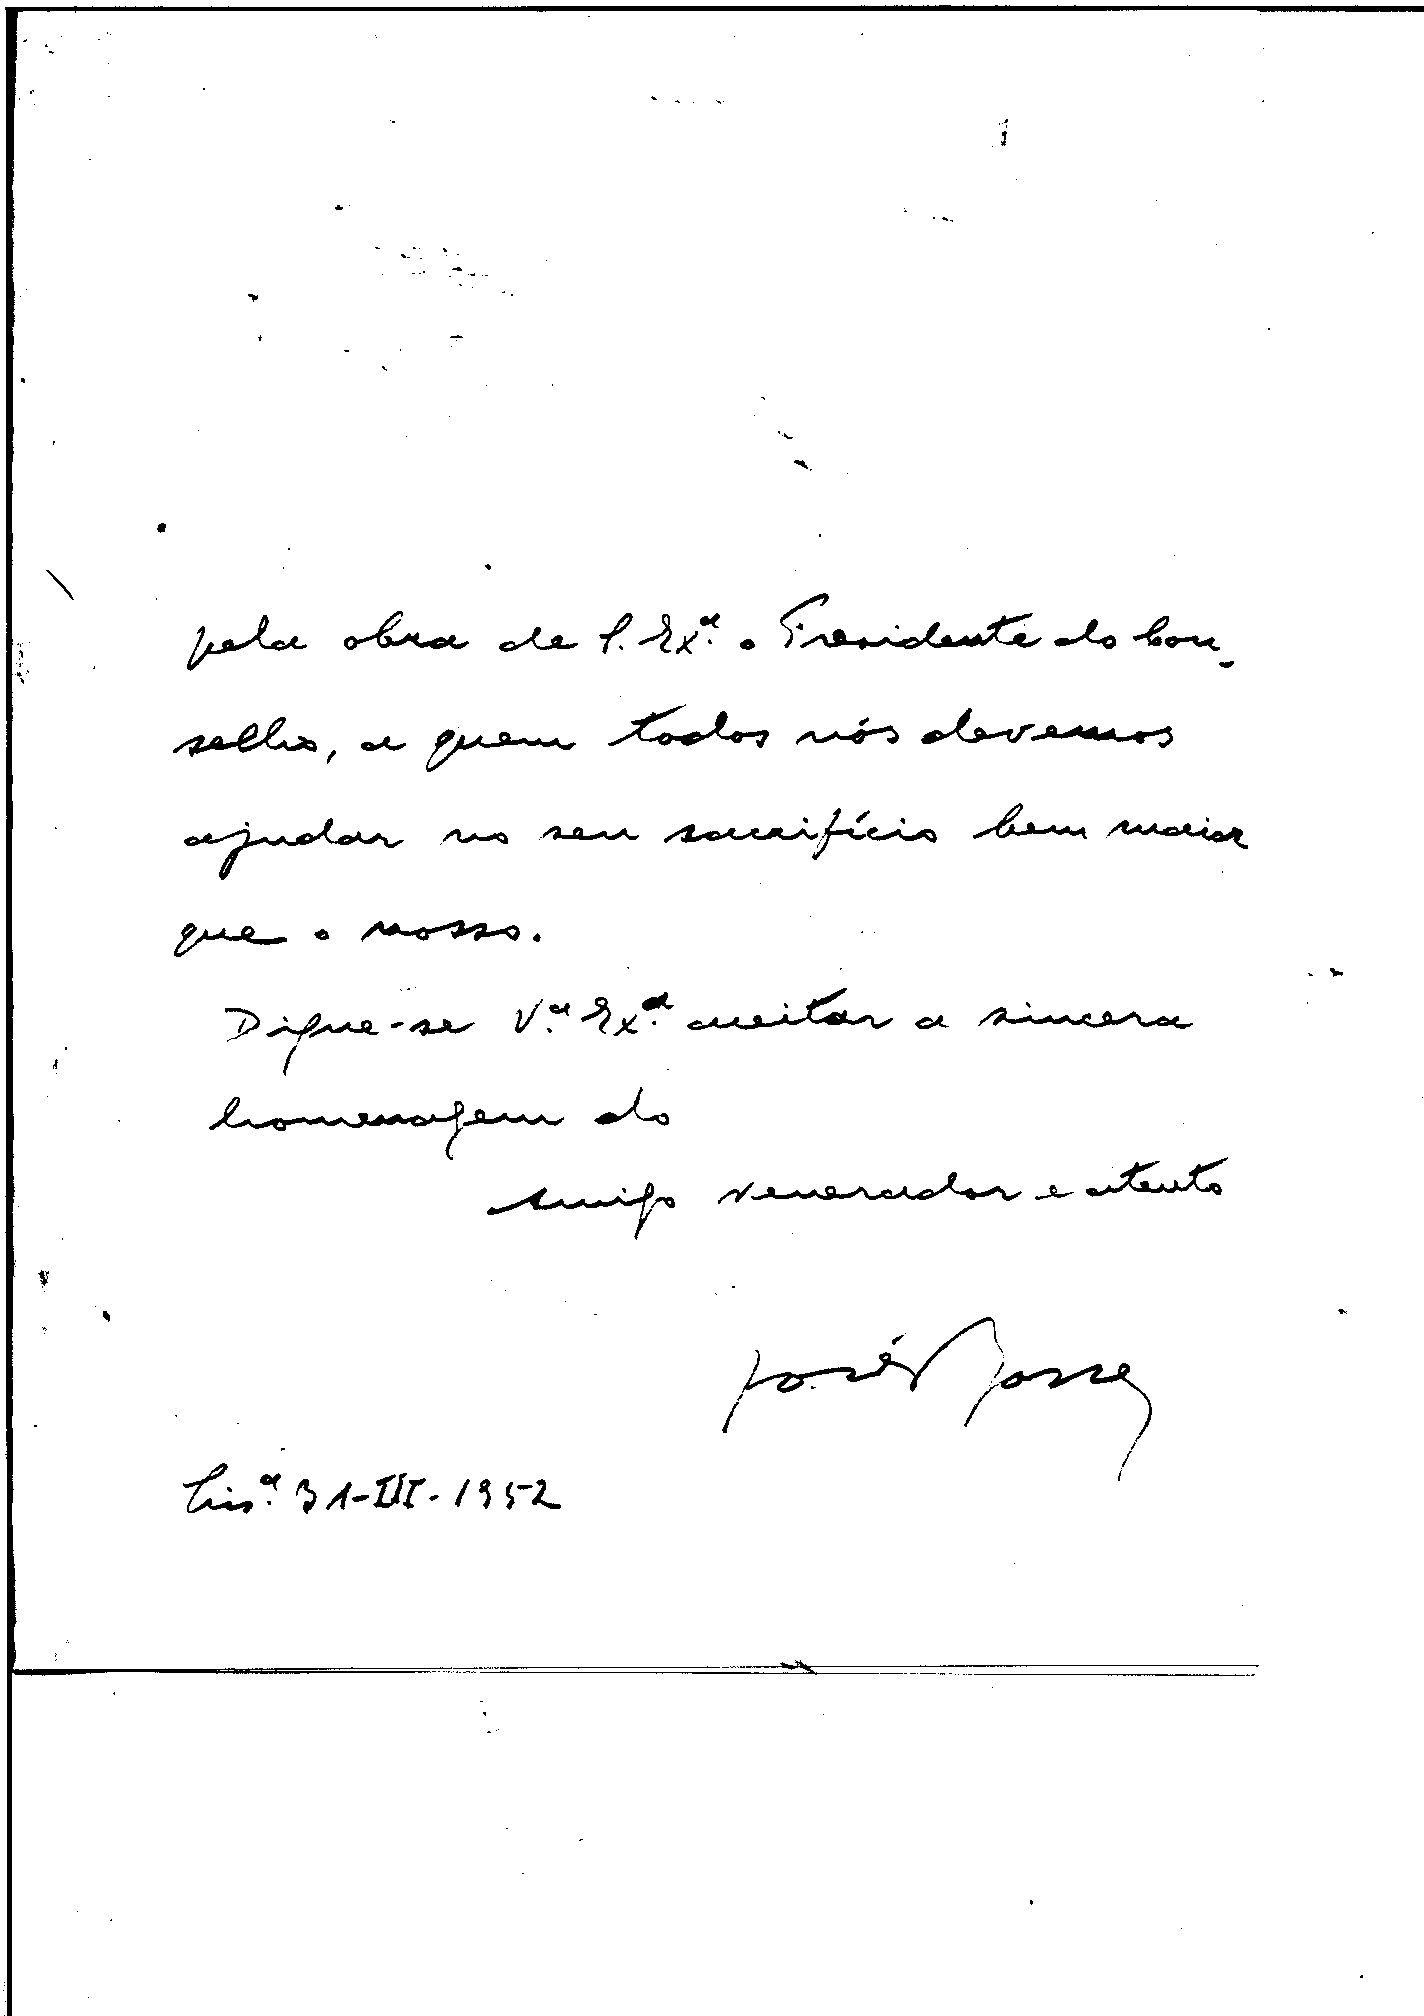 pela obra de S. Exª. o Presidente do Con-
selho, a quem todos nós devemos
ajudar no seu sacrifício bem maior
que o nosso.
Digne-se V.ª Exª. aceitar a sincera
homenagem do
Amigo venerador e atento
José
Lisª. 31-III-1952